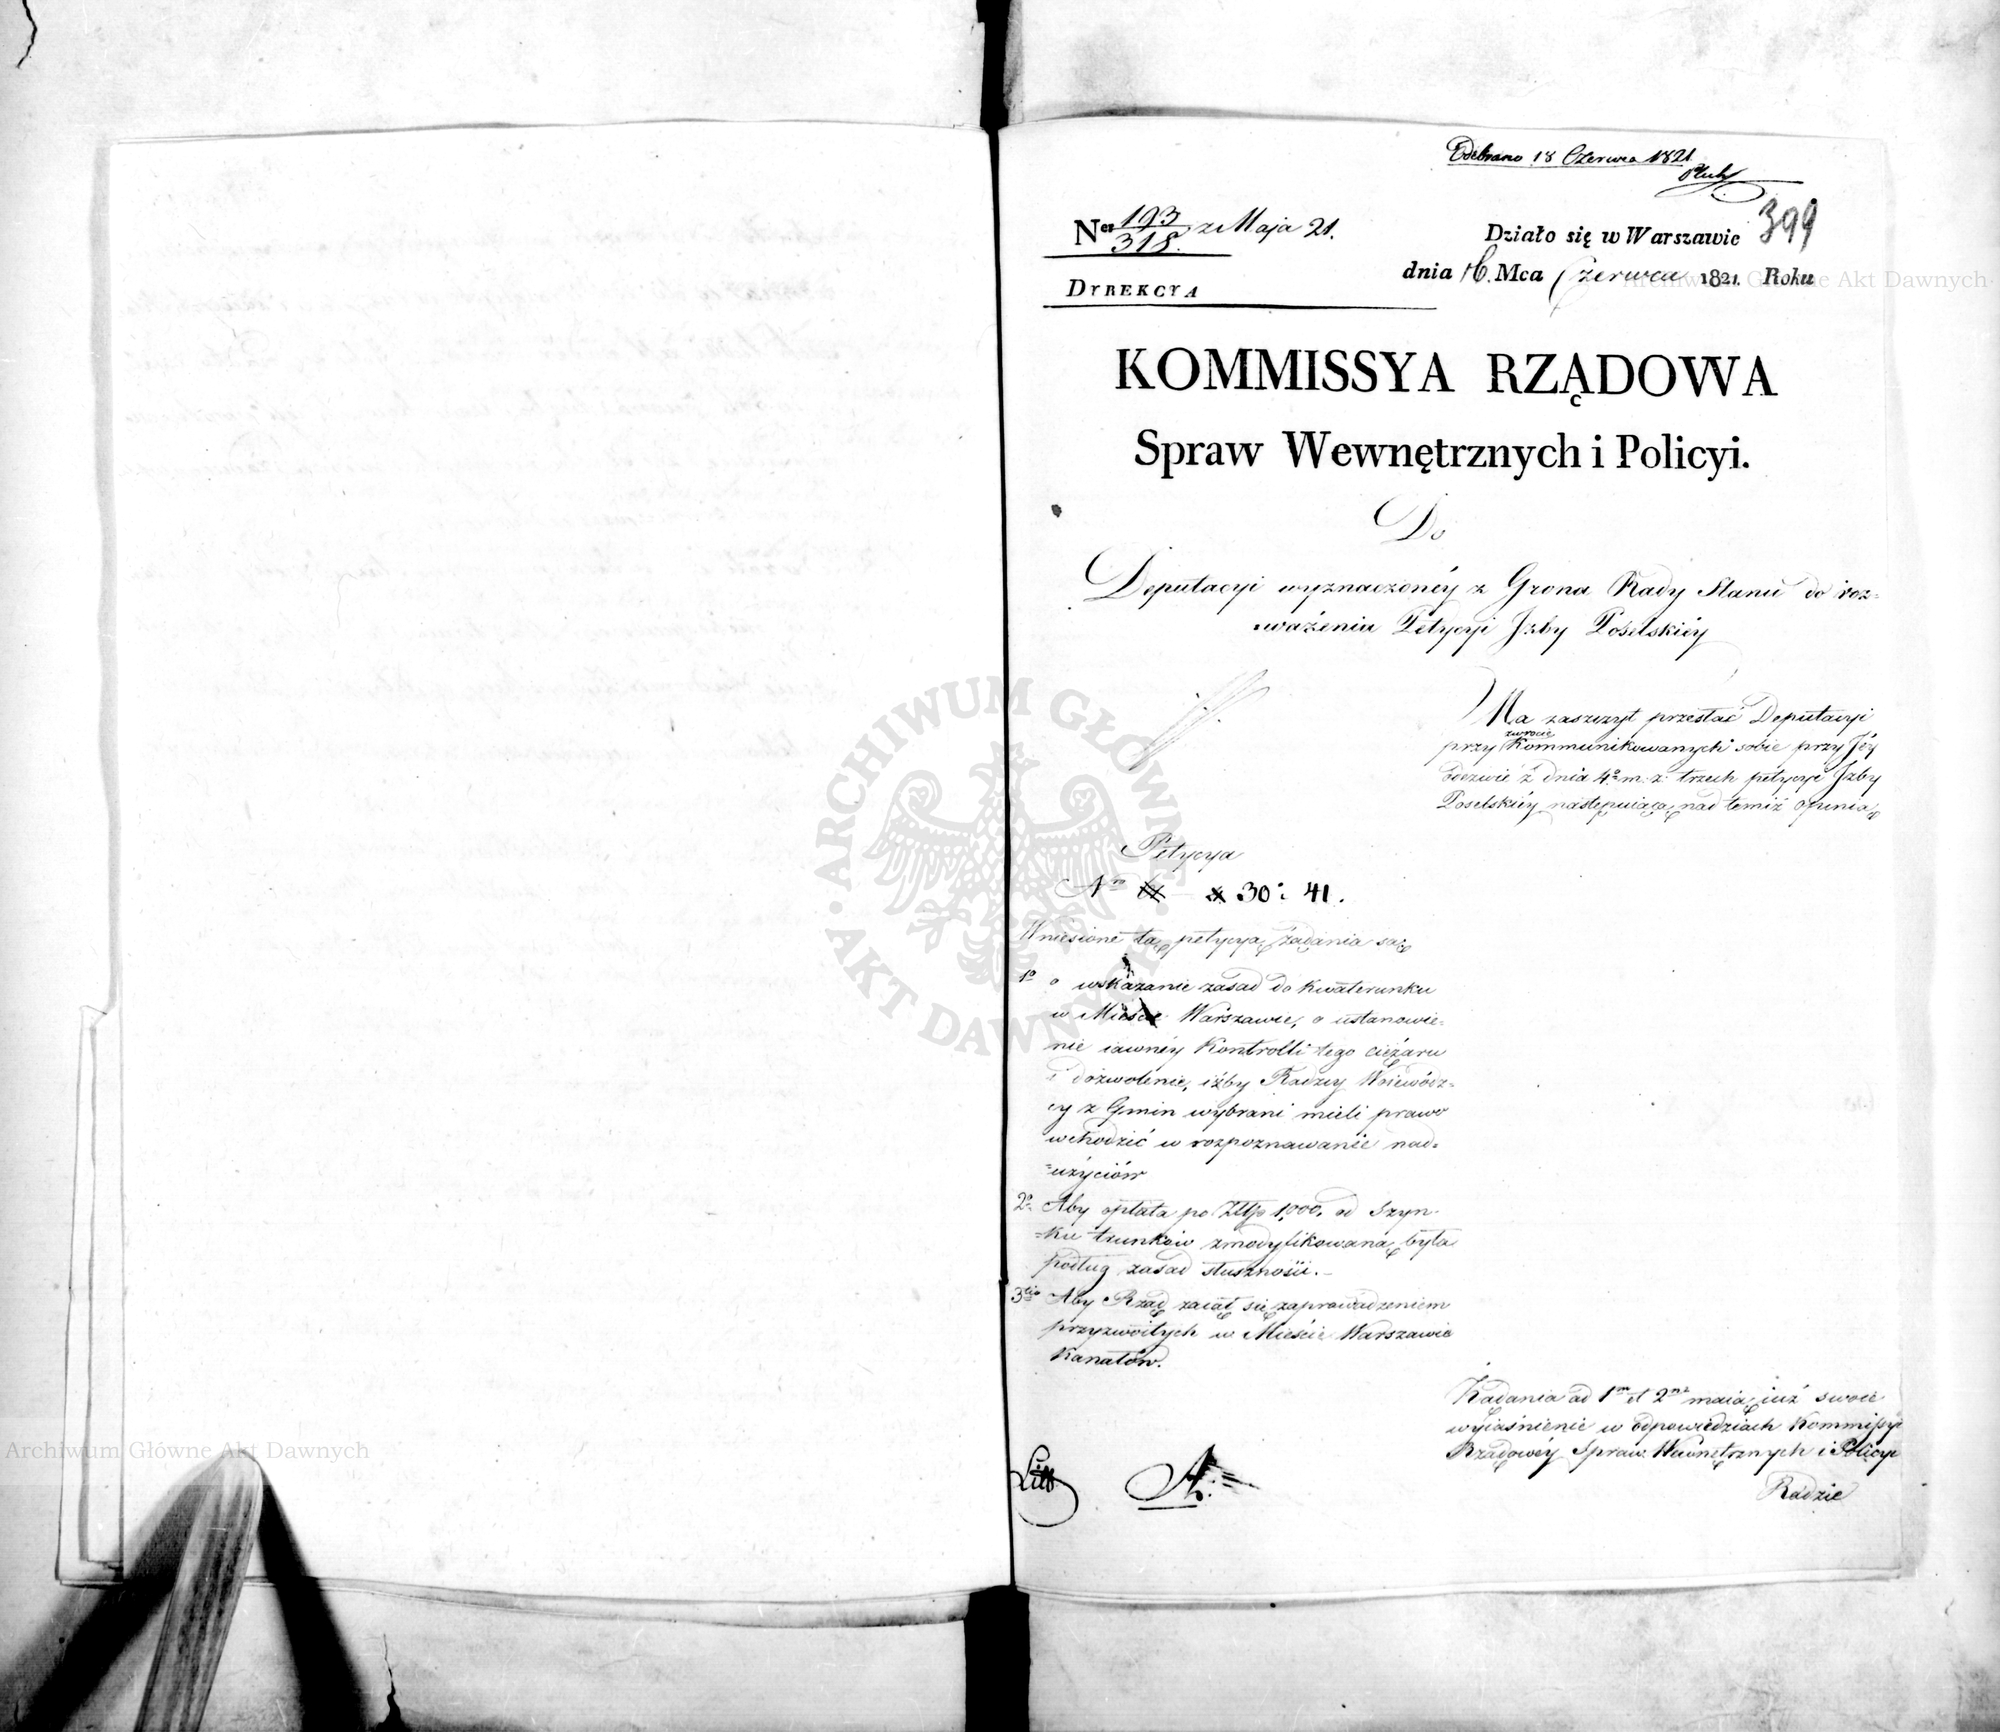 Odebrano 18 Czerwca 1821
399
Ner 193/318. z Maja 21.
Działo się w Warszawie
dnia 16. Mca Czerwca 1821. Roku
DYREKCYA
KOMMISSYA RZĄDOWA
Spraw Wewnętrznych i Policyi.
Do
Deputacyi wyznaczonéy z Grona Rady Stanu do roz=
=ważenia Petycyi Jzby Poselskiéy
Ma zaszczyt przesłać Deputacyi
przy zwrocie Kommunikowanych sobie przy Jéy
odezwie z dnia 4º m. z. trzech petycyi Jzby
Poselskiéy następuiącą nad temiż opinią
Petycya
Nro 30 i 41.
Wniesione tą petycyą żądania są:
1º o wskazanie zasad do kwaterunku
w Mieście Warszawie, o ustanowie=
nie iawnéy Kontrolli tego ciężaru
i dozwolenie, iżby Radzcy Woiewódz=
cy z Gmin wybrani mieli prawo
wchodzić w rozpoznawanie nad=
=użyciów
2º Aby opłata po Złtp 1,000. od Szyn=
=ku trunków zmodyfikowaną była
podług zasad słuszności.
3tio Aby Rząd zaiął się zaprowadzeniem
przyzwoitych w Mieście Warszawie
Kanałów.
Żądania ad 1m et 2m maią iuż swoie
wyiaśnienie w odpowiedziach Kommissyi
Rządowéy Spraw Wewnętrznych i Policyi
Radzie
Litt. A.
Archiwum Główne Akt Dawnych
Archiwum Główne Akt Dawnych
ARCHIWUM GŁÓWNE
AKT DAWNYCH